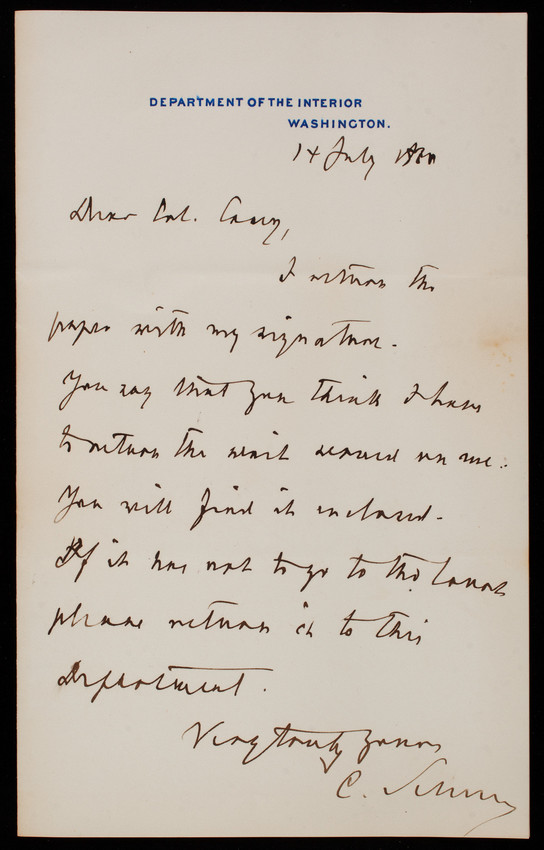 DEPARTMENT OF THE INTERIOR
WASHINGTON.
14 July 1880
Dear Col. Casey,
I return the
paper with my signature.
You say that you think I have
to return the writ served on me.
You will find it inclosed.
If it has not to go to the Court
please return it to this
Department.
Very truly yours
C. Schurz